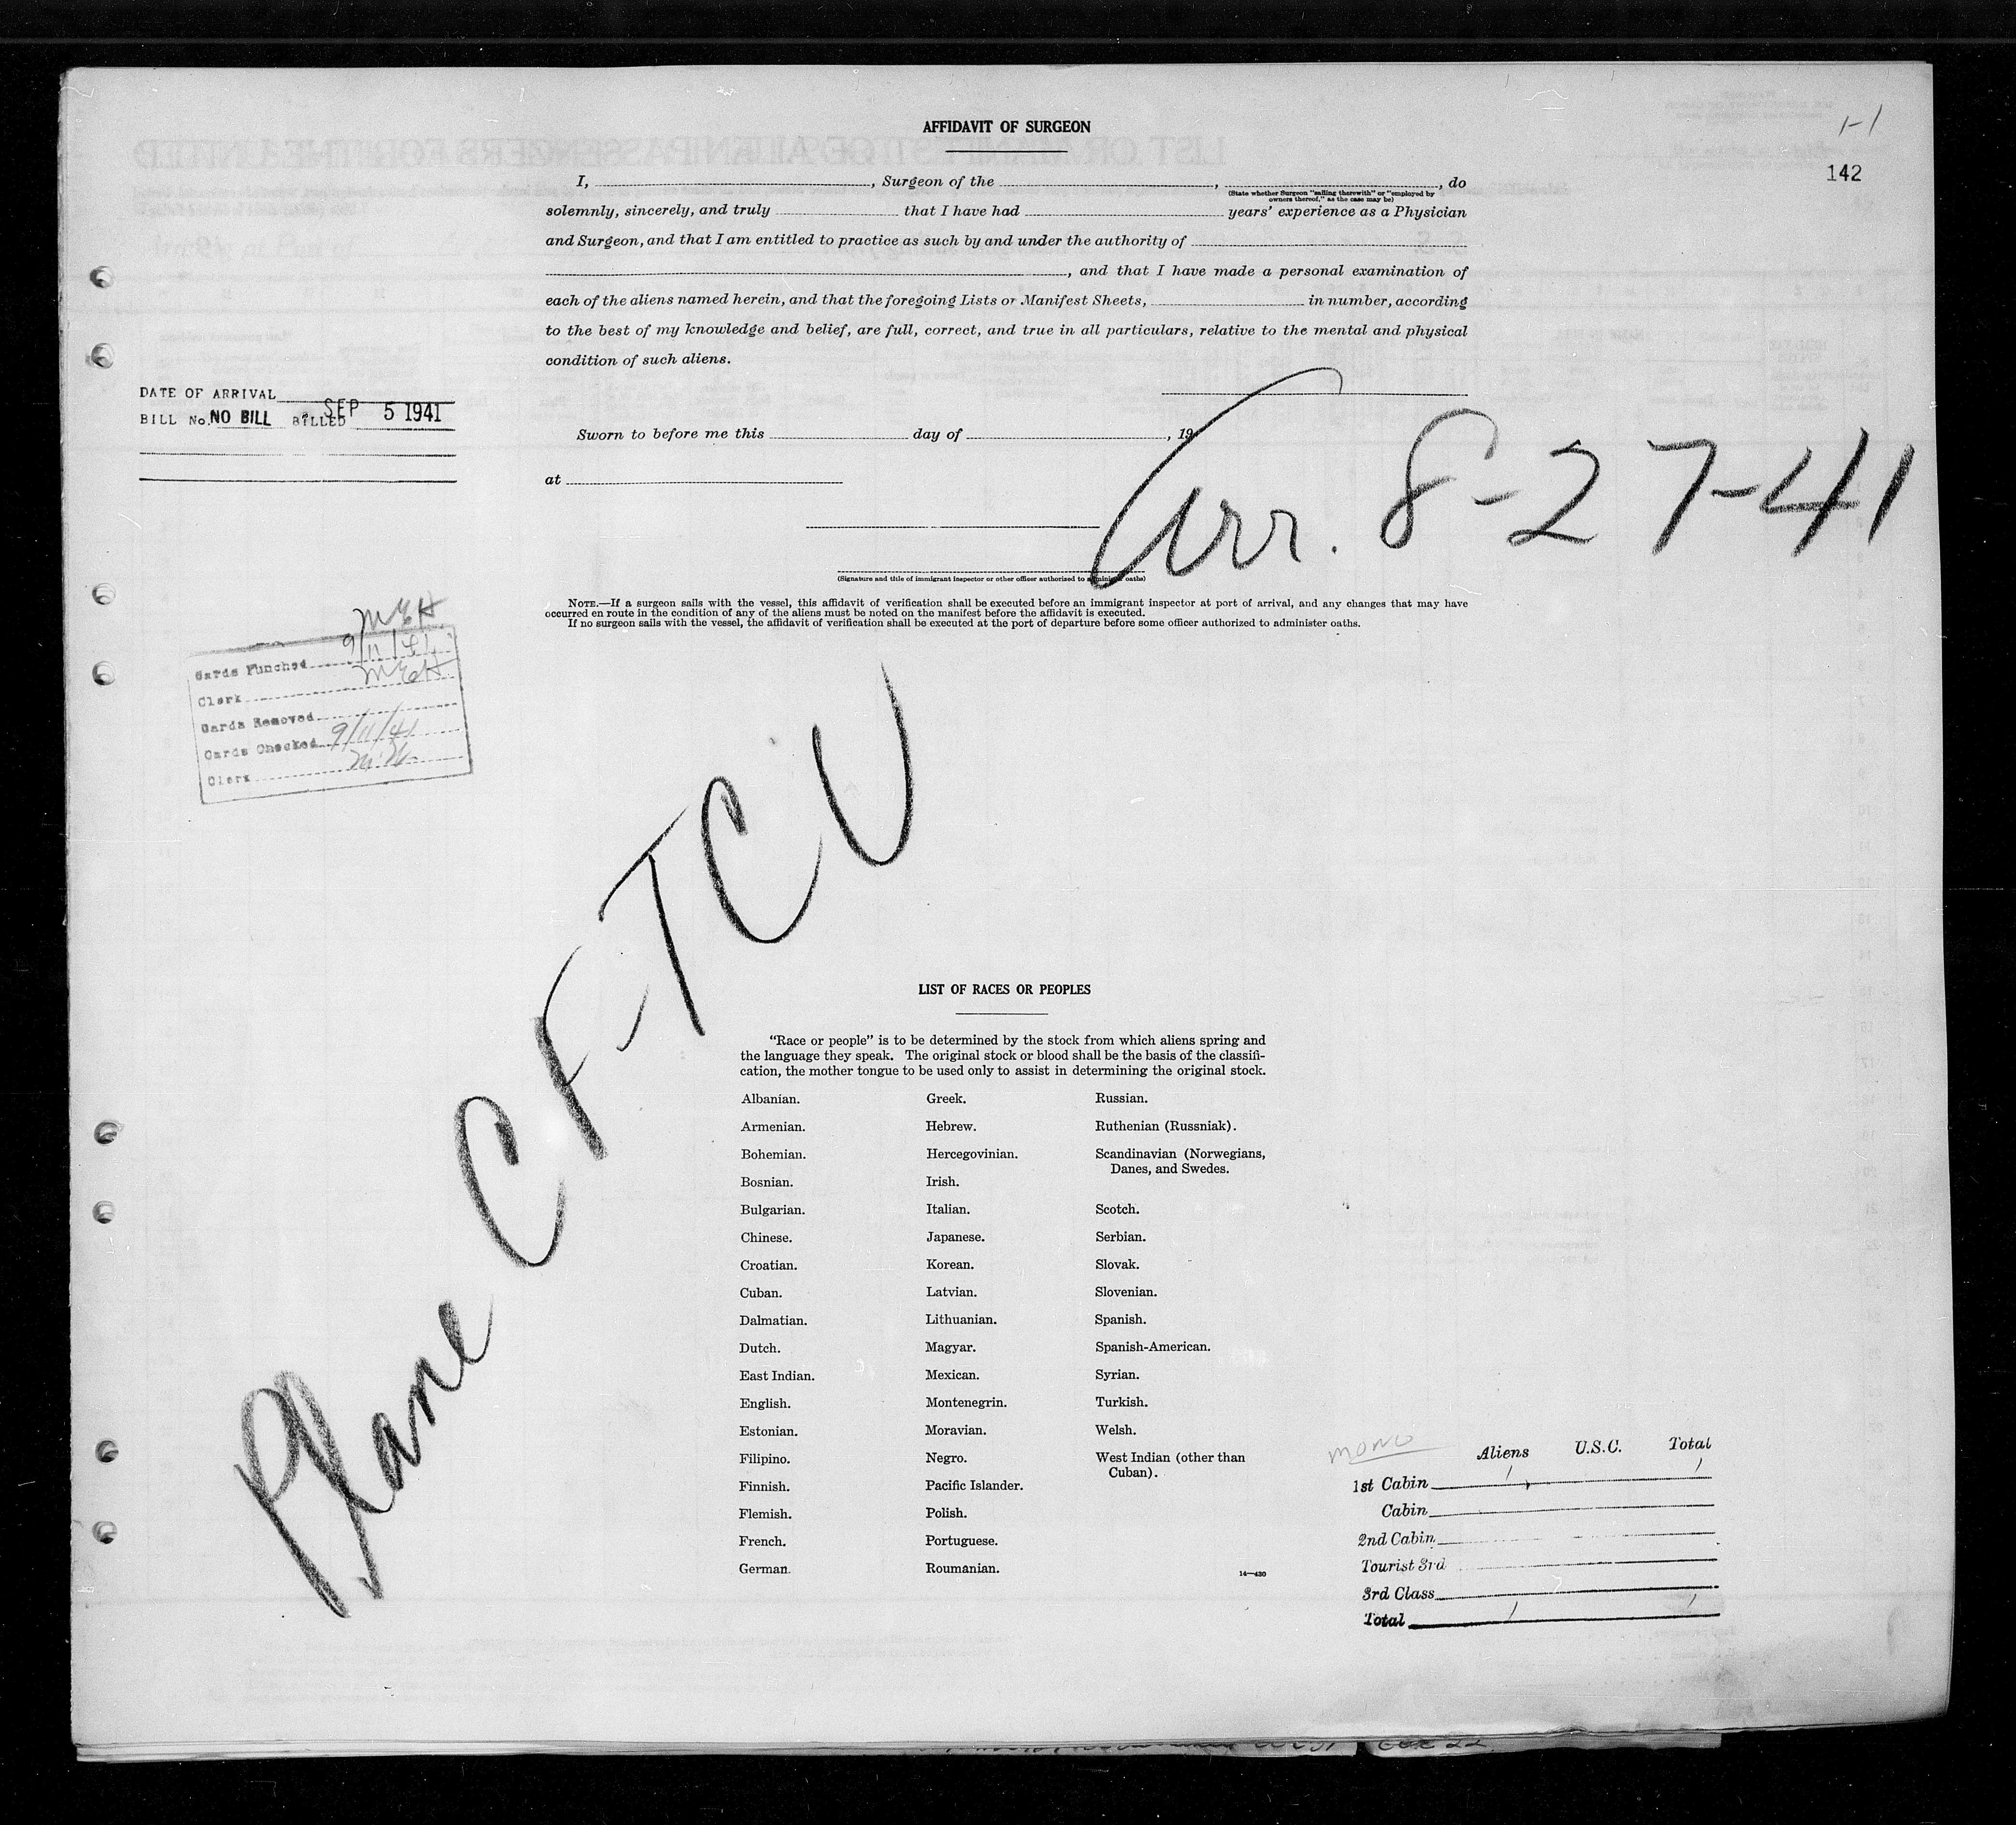 AFFIDAVIT OF SURGEON
1-1
142
I, , Surgeon of the , , do
(State whether Surgeon "sailing therewith" or "employed by
owners thereof," as the case may be)
solemnly, sincerely, and truly that I have had years' experience as a Physician
and Surgeon, and that I am entitled to practice as such by and under the authority of
, and that I have made a personal examination of
each of the aliens named herein, and that the foregoing Lists or Manifest Sheets, in number, according
to the best of my knowledge and belief, are full, correct, and true in all particulars, relative to the mental and physical
condition of such aliens.
DATE OF ARRIVAL
BILL No. NO BILL BILLED SEP 5 1941
Sworn to before me this day of , 19
at
Arr. 8-27-41
(Signature and title of immigrant inspector or other officer authorized to administer oaths)
NOTE.—If a surgeon sails with the vessel, this affidavit of verification shall be executed before an immigrant inspector at port of arrival, and any changes that may have
occurred en route in the condition of any of the aliens must be noted on the manifest before the affidavit is executed.
If no surgeon sails with the vessel, the affidavit of verification shall be executed at the port of departure before some officer authorized to administer oaths.
MEH
Cards Punched 9/11/41
Clerk MEH
Cards Removed
Cards Checked 9/11/41
Clerk
Plane CF-TCU
LIST OF RACES OR PEOPLES
"Race or people" is to be determined by the stock from which aliens spring and
the language they speak. The original stock or blood shall be the basis of the classifi-
cation, the mother tongue to be used only to assist in determining the original stock.
Albanian.
Armenian.
Bohemian.
Bosnian.
Bulgarian.
Chinese.
Croatian.
Cuban.
Dalmatian.
Dutch.
East Indian.
English.
Estonian.
Filipino.
Finnish.
Flemish.
French.
German.
Greek.
Hebrew.
Hercegovinian.
Irish.
Italian.
Japanese.
Korean.
Latvian.
Lithuanian.
Magyar.
Mexican.
Montenegrin.
Moravian.
Negro.
Pacific Islander.
Polish.
Portuguese.
Roumanian.
Russian.
Ruthenian (Russniak).
Scandinavian (Norwegians,
Danes, and Swedes.
Scotch.
Serbian.
Slovak.
Slovenian.
Spanish.
Spanish-American.
Syrian.
Turkish.
Welsh.
West Indian (other than
Cuban).
14—430
mono
Aliens U.S.C. Total
1st Cabin 1 1
Cabin
2nd Cabin
Tourist 3rd
3rd Class
Total 1 1